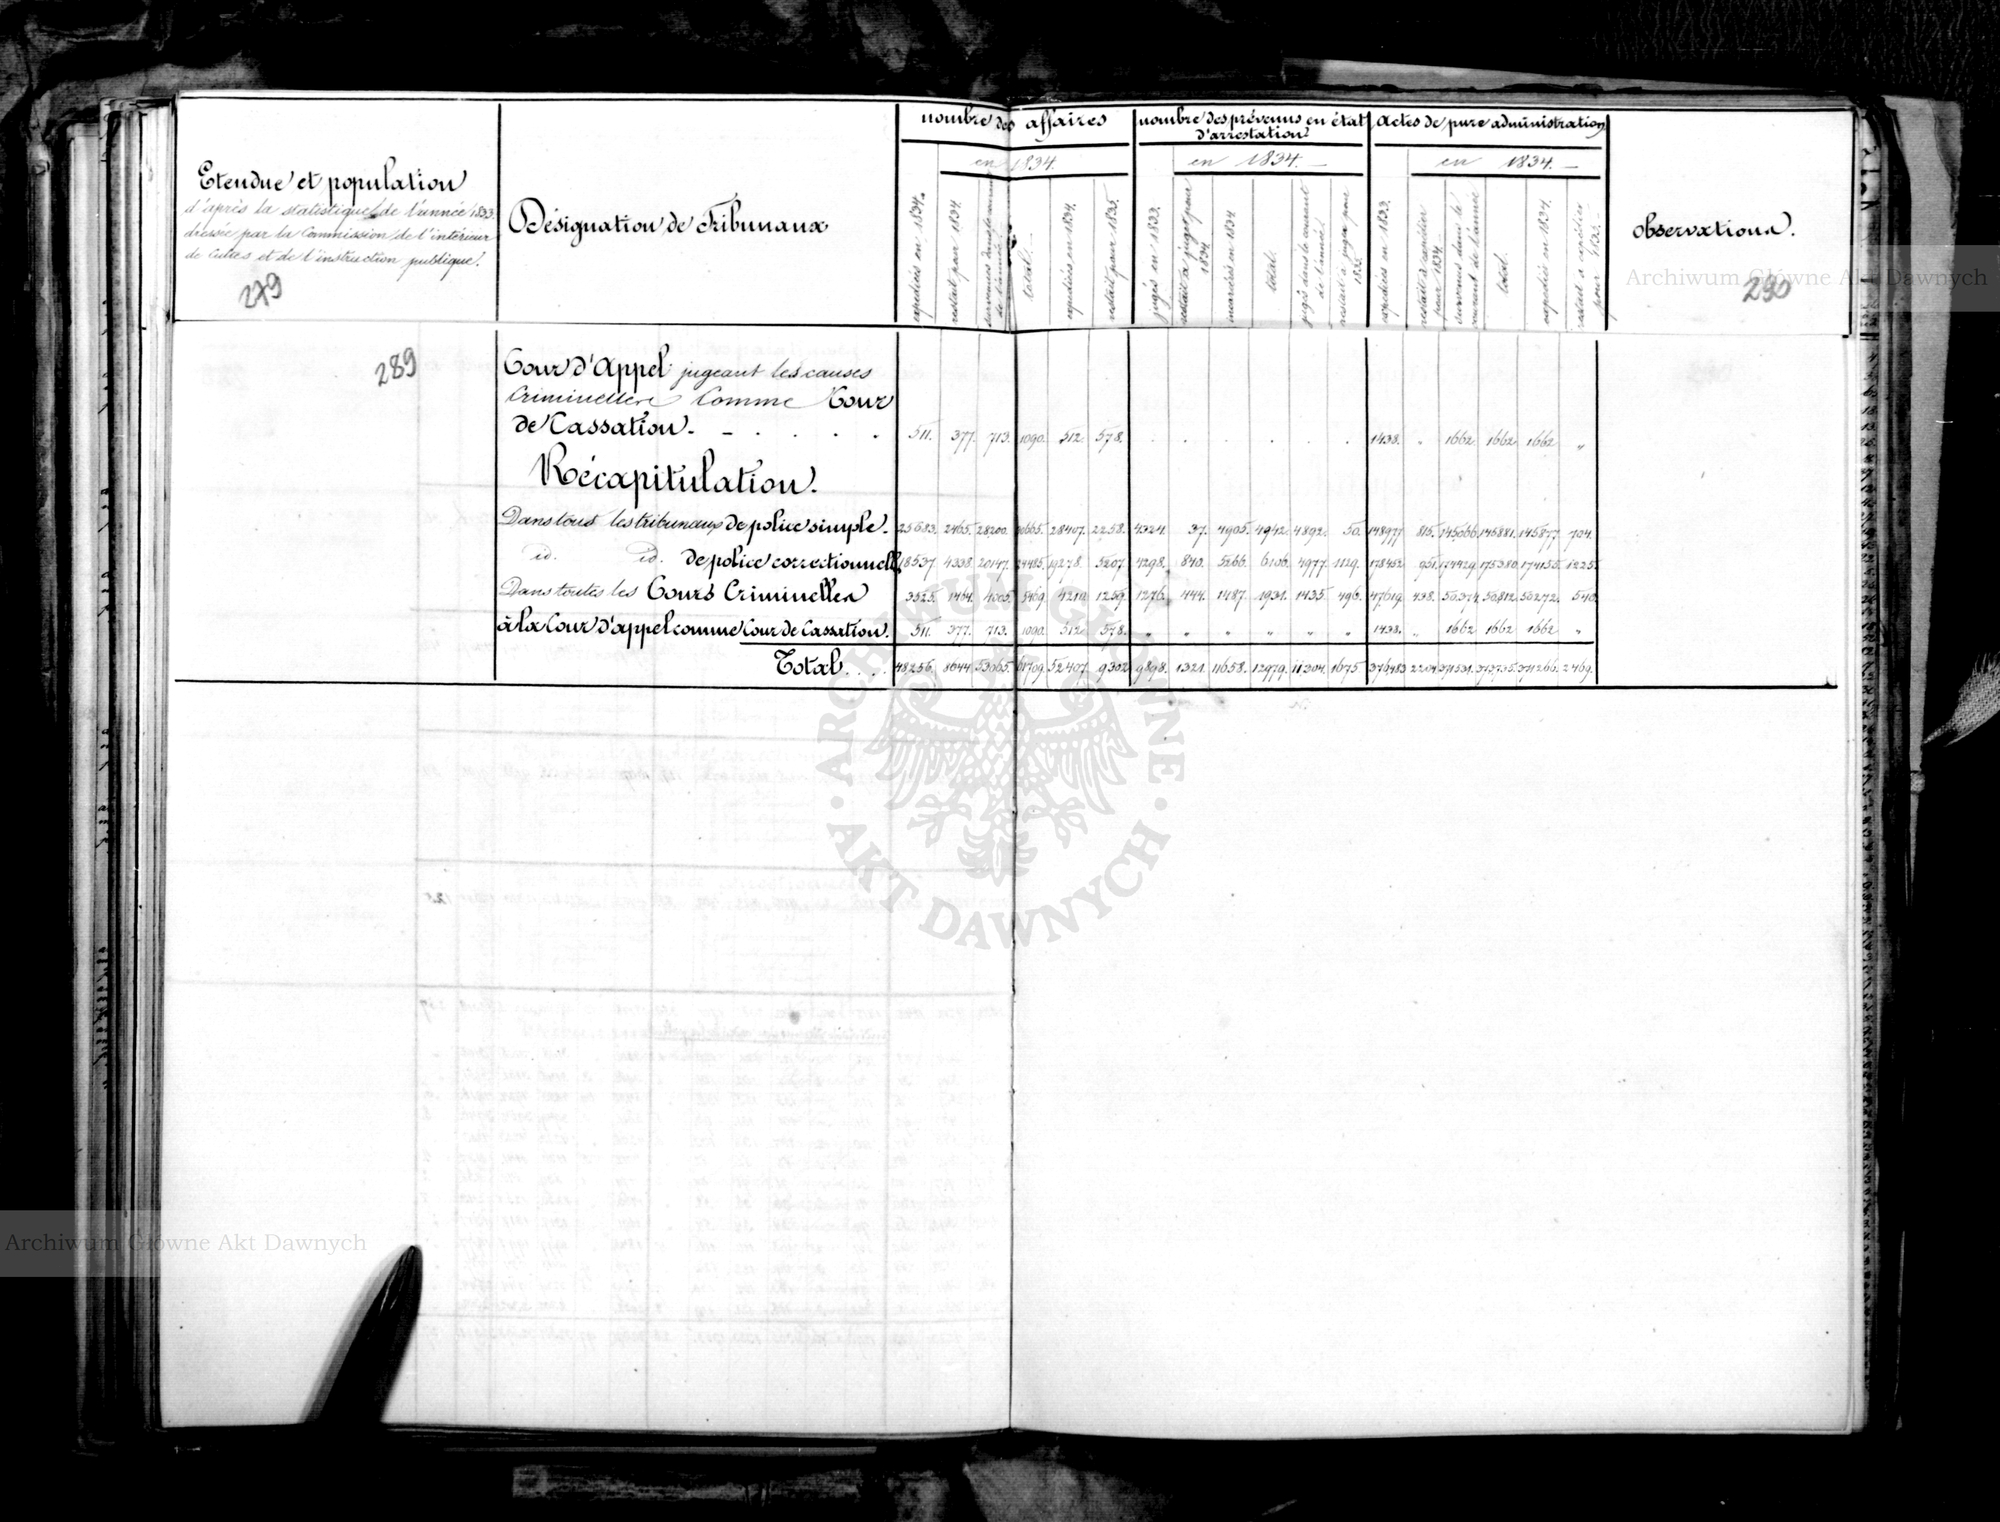 Etendue et population
d'après la statistique de l'année 1833.
dressée par la Commission de l'intérieur
de Cultes et de l'instruction publique.
279
Désignation de Tribunaux
nombre des affaires
en 1834.
expédiés en 1834.
restait pour 1834.
survenus dans le courant de l'année.
total.
expédiés en 1834.
restait pour 1835.
nombre des prévenus en état d'arrestation
en 1834.
jugés en 1833.
restait à juger pour 1834
total.
jugés dans le courant de l'année.
restait à juger pour 1835.
Actes de pure administration
en 1834.
expédiés en 1833.
restait à expédier pour 1834
survenus dans le courant de l'année
total.
expédiés en 1834.
restait à expédier pour 1835.
observations.
290
289
Cour d'Appel jugeant les causes
Criminelles Comme Cour
de Cassation. 511. 377. 713. 1090. 512. 578. 1438. " 1662 1662 1662 "
Récapitulation.
Dans tous les tribunaux de police simple. 2465. 28200. 30665. 28407. 2258. 4324. 37. 4905. 4942. 4892. 50. 148977 815. 145066. 145881. 145877. 704.
id. id. de police correctionnelle 18537. 4338. 20147. 24485. 19278. 5207. 4298. 840. 5266. 6106. 4977. 1129. 178452 951. 174429. 175380. 174155. 1225.
Dans toutes les Cours Criminelles 3525. 1464. 4005. 5469. 4210. 1259. 1276. 444. 1487. 1931. 1435. 496. 47619. 438. 50374. 50812. 50272. 540.
à la Cour d'appel comme Cour de Cassation. 511. 377. 713. 1090. 512. 578. " " " " " " 1438. " 1662 1662 1662 "
Total. 48256. 8644. 53065. 61709. 52407. 9302 9898. 1321. 11658. 12979. 11304. 1675 376483 2204. 371531. 373735. 371266. 2469.
Archiwum Główne Akt Dawnych
ARCHIWUM GŁÓWNE · AKT DAWNYCH ·
Archiwum Główne Akt Dawnych